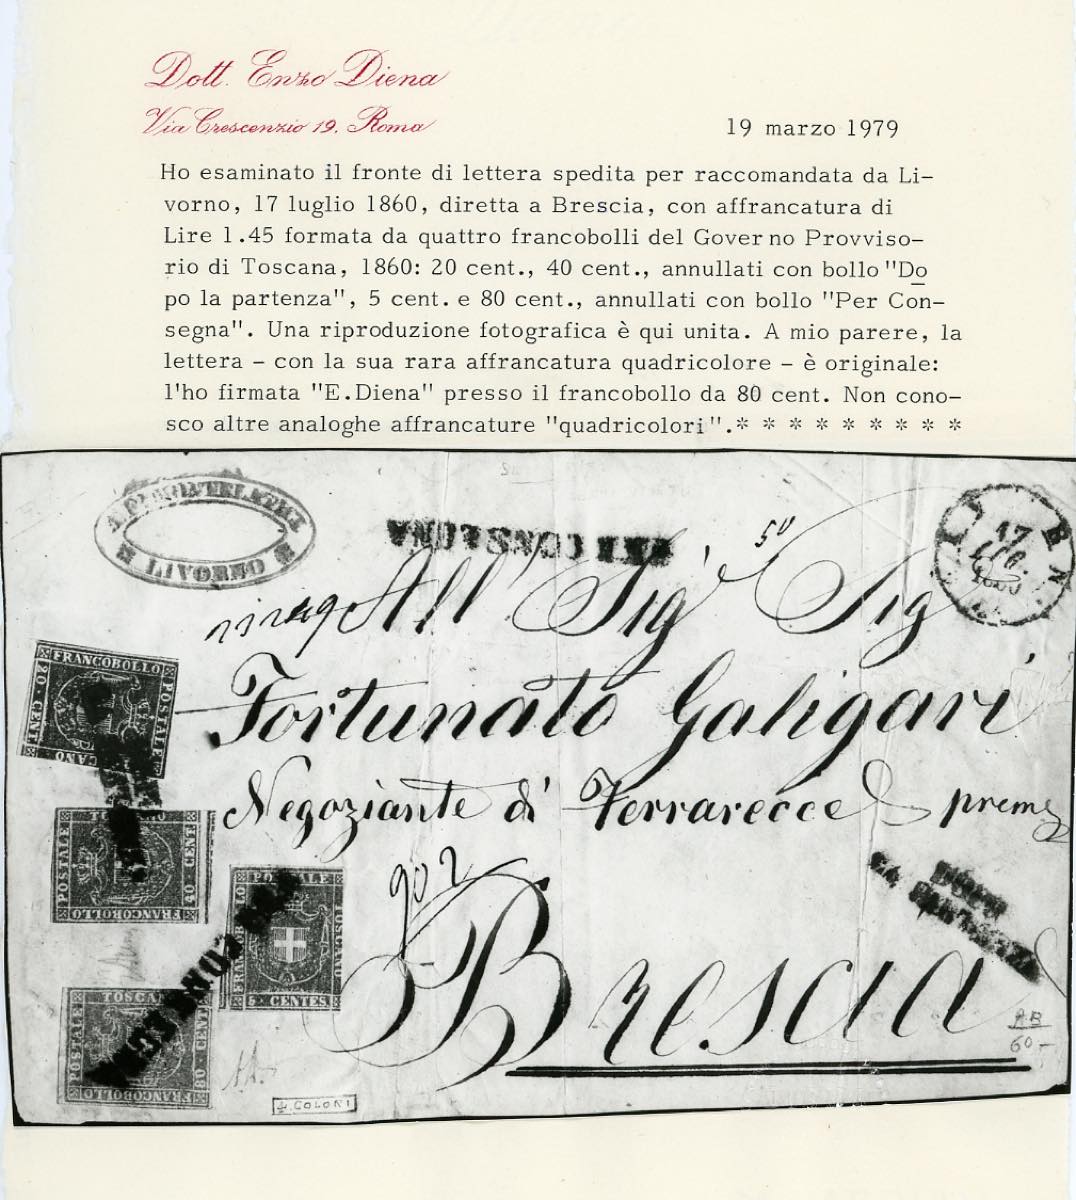 Dott. Enzo Diena
Via Crescenzio 19. Roma
19 marzo 1979
Ho esaminato il fronte di lettera spedita per raccomandata da Li-
vorno, 17 luglio 1860, diretta a Brescia, con affrancatura di
Lire 1.45 formata da quattro francobolli del Governo Provviso-
rio di Toscana, 1860: 20 cent., 40 cent., annullati con bollo "Do
po la partenza", 5 cent. e 80 cent., annullati con bollo "Per Con-
segna". Una riproduzione fotografica è qui unita. A mio parere, la
lettera - con la sua rara affrancatura quadricolore - è originale:
l'ho firmata "E.Diena" presso il francobollo da 80 cent. Non cono-
sco altre analoghe affrancature "quadricolori".* * * * * * * * *
LIVORNO
PER CONSEGNA
50
17
All' Sig Sig
FRANCOBOLLO
POSTALE
20 CENT
Fortunato Galigari
Negoziante di Ferrarecce
POSTALE
FRANCOBOLLO
40 CENT
902
DOPO
LA PARTENZA
FRANCOBOLLO
POSTALE
TOSCANO
5 CENTES
PER CONSEGNA
Brescia
TOSCAN
POSTALE
FRANCOBOLLO
80 CENT
AB
60-
4 COLORI